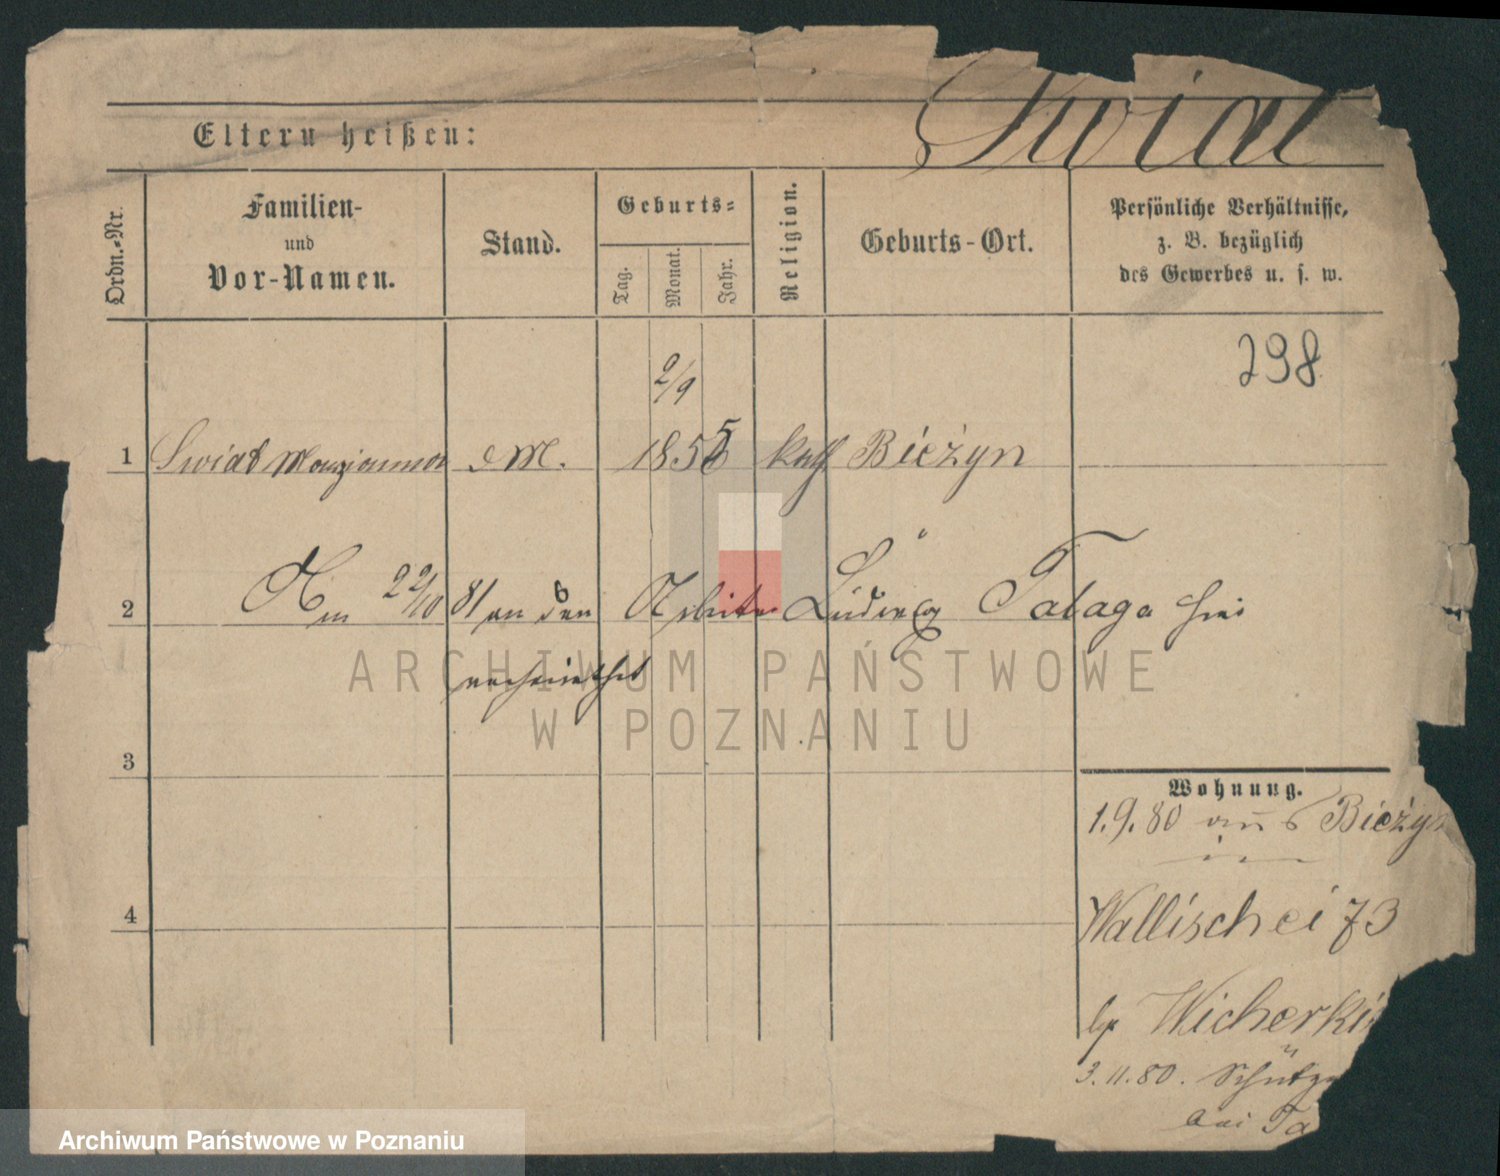 Swiat
Eltern heißen:
Ordn.-Nr.
Familien-
und
Vor-Namen.
Stand.
Geburts-
Tag.
Monat.
Jahr.
Religion.
Geburts-Ort.
Persönliche Verhältnisse,
z. B. bezüglich
des Gewerbes u. s. w.
298
2/9
1 Swiat Marzianna d M. 1855 kath Bieżyn
2 Am 22/10 81 an den Arbeiter Ludwig Tataga hier
verheirathet
ARCHIWUM PAŃSTWOWE
W POZNANIU
3
Wohnung.
1.9.80 aus Bieżyn
in
4
Wallischei 73
by Wicherki
3.11.80. Schütze
bei Ta
Archiwum Państwowe w Poznaniu